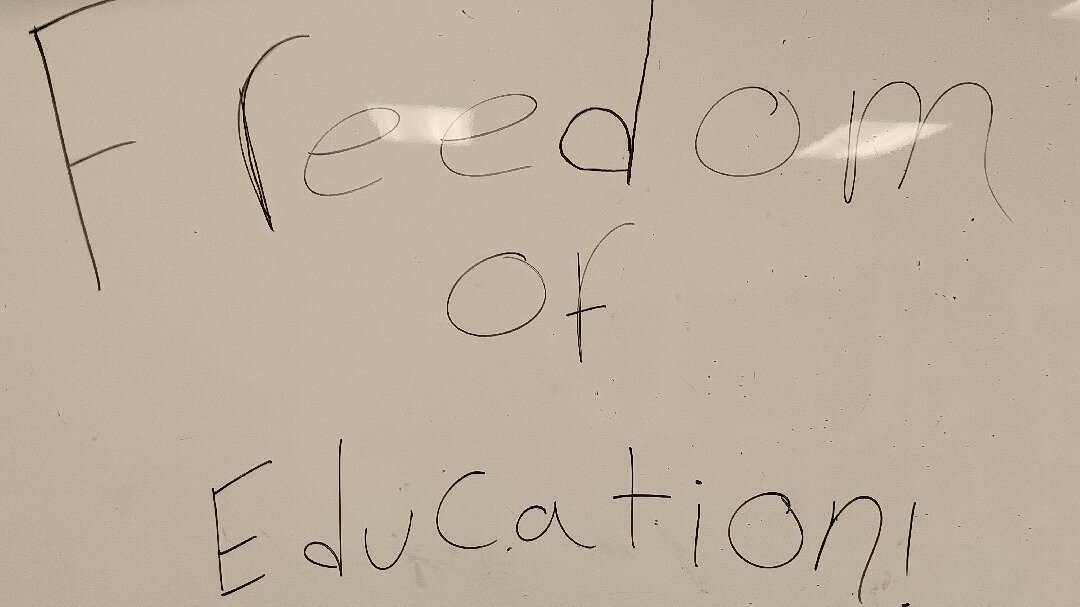 Freedom
of
Education!